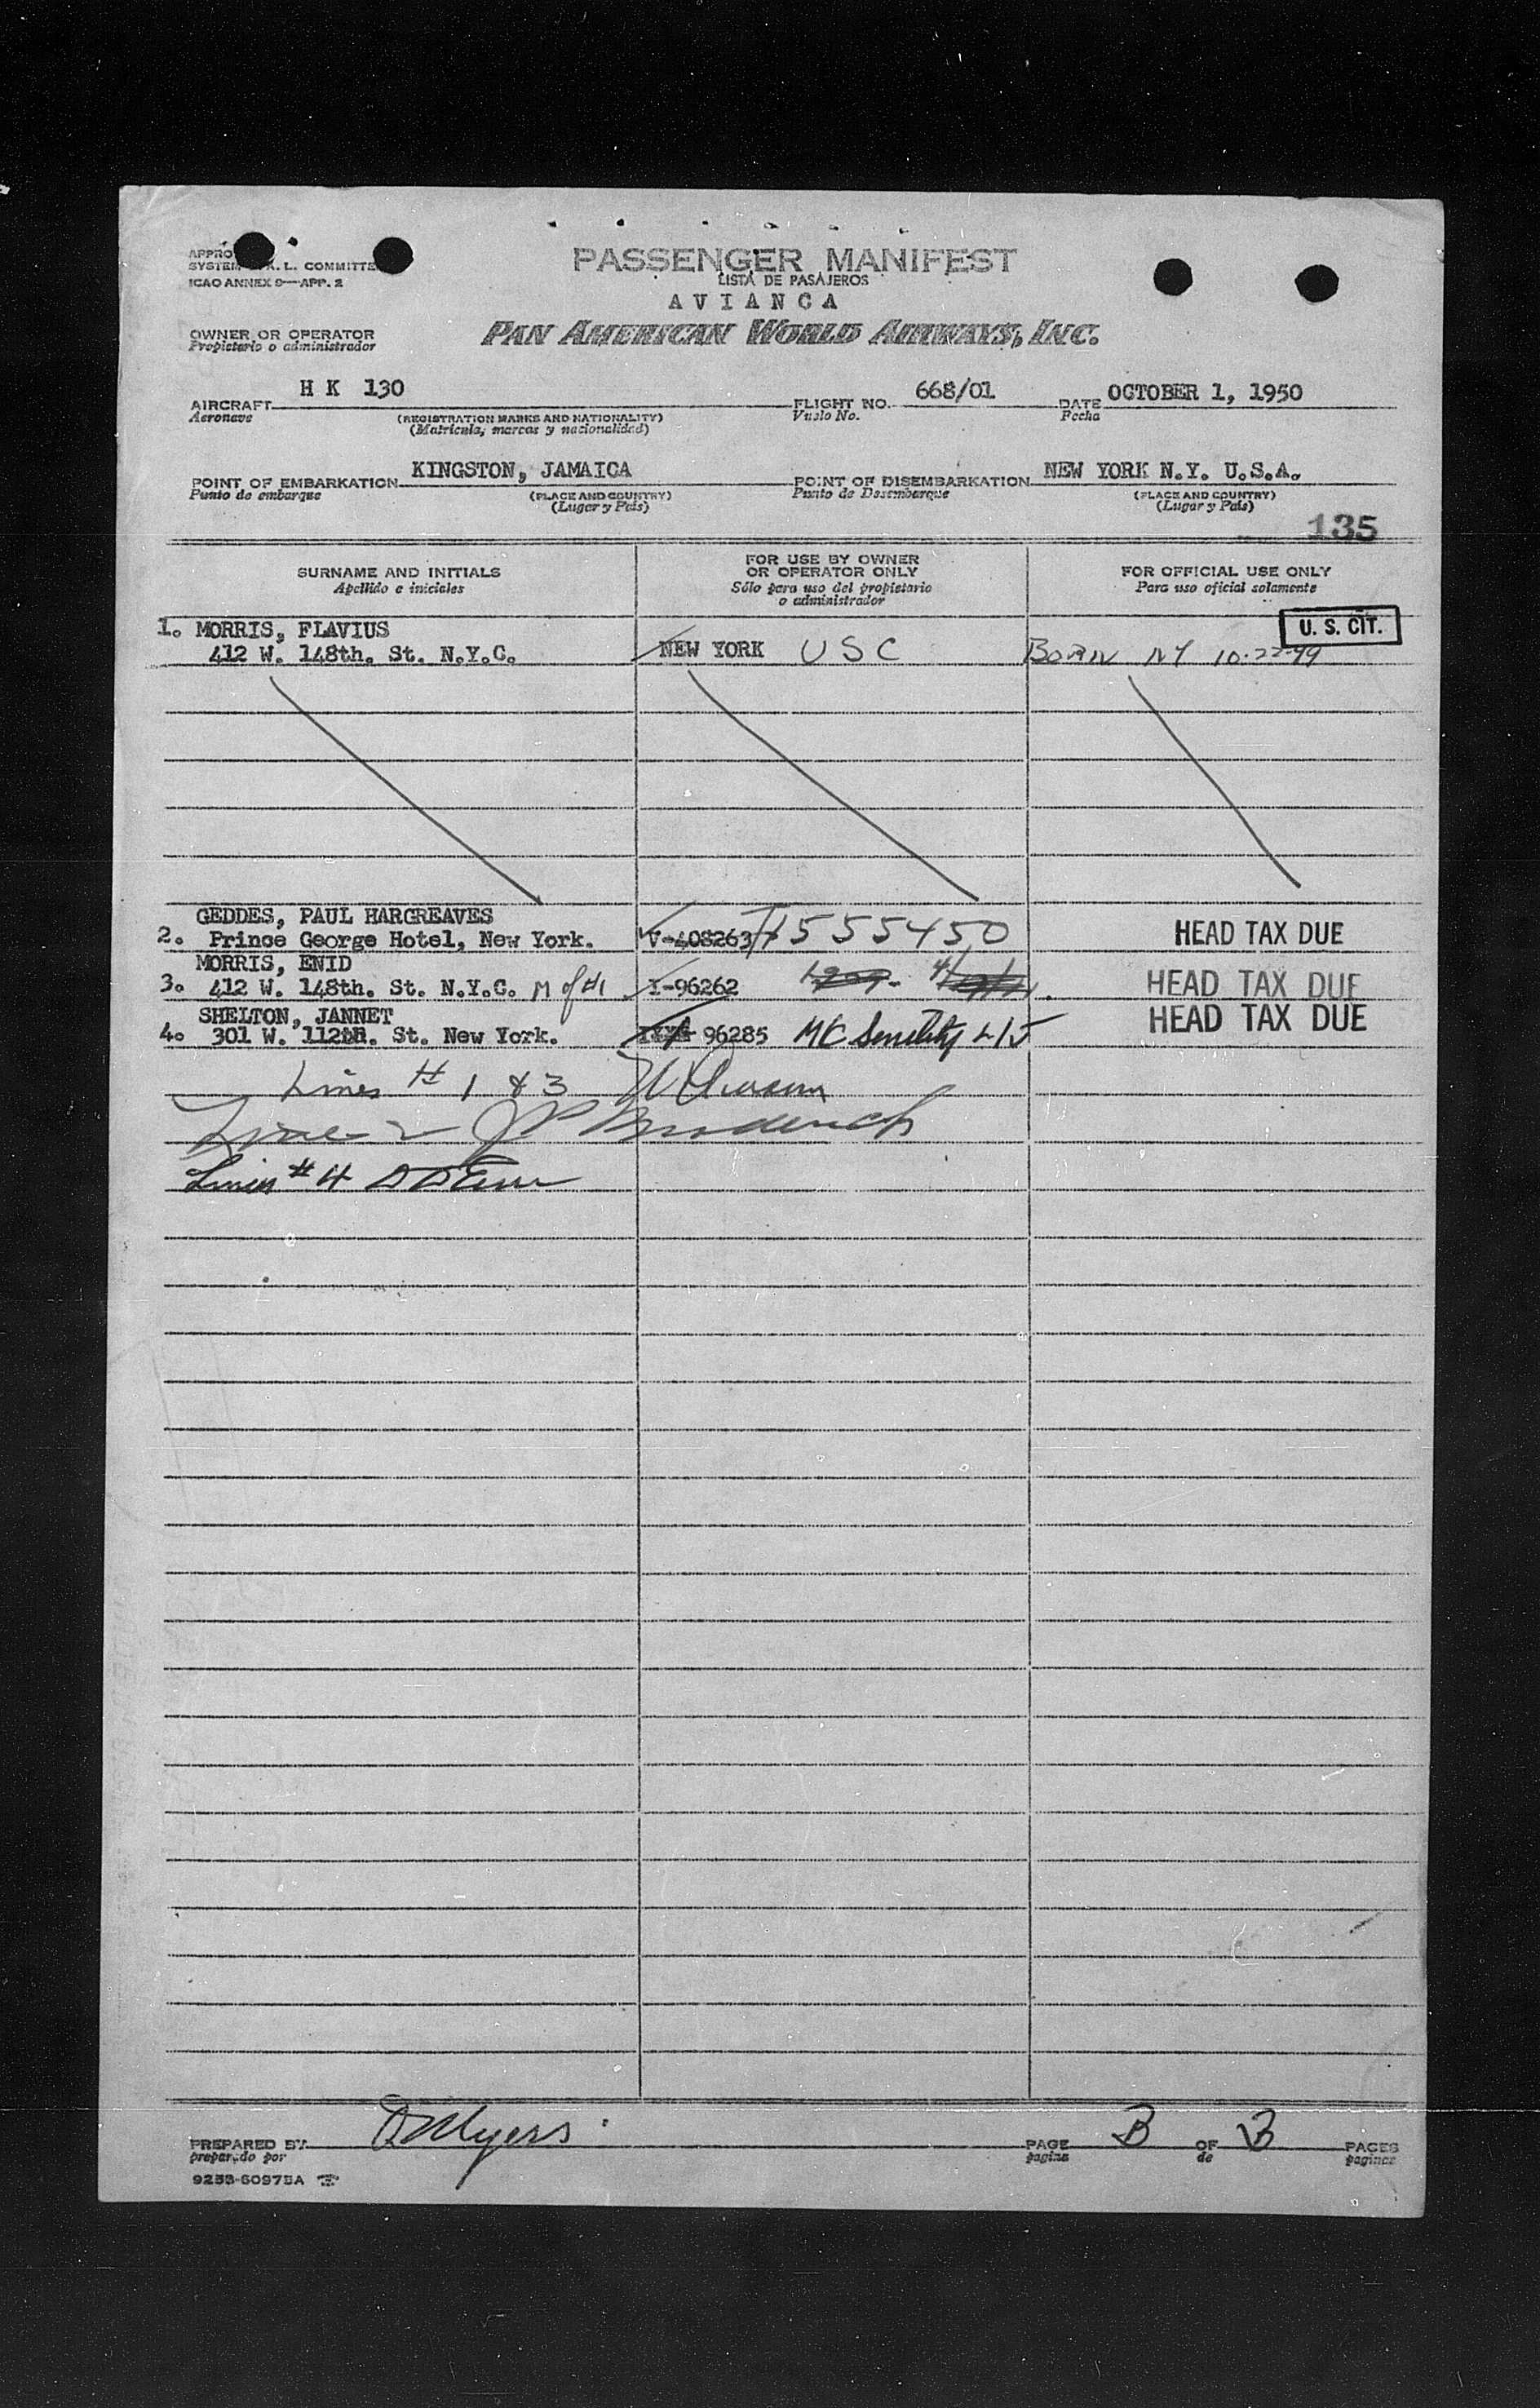 APPRO
SYSTEM A. L. COMMITTE
ICAO ANNEX 9—APP. 2
PASSENGER MANIFEST
LISTA DE PASAJEROS
AVIANCA
OWNER OR OPERATOR
Propietario o administrador
PAN AMERICAN WORLD AIRWAYS, INC.
AIRCRAFT H K 130 FLIGHT NO. 668/01 DATE OCTOBER 1, 1950
Aeronave (REGISTRATION MARKS AND NATIONALITY) Vuelo No. Fecha
(Matricula, marcas y nacionalidad)
POINT OF EMBARKATION KINGSTON, JAMAICA POINT OF DISEMBARKATION NEW YORK N.Y. U.S.A.
Punto de embarque (PLACE AND COUNTRY) Punto de Desembarque (PLACE AND COUNTRY)
(Lugar y País) (Lugar y País)
135
SURNAME AND INITIALS
Apellido e iniciales
FOR USE BY OWNER
OR OPERATOR ONLY
Sólo para uso del propietario
o administrador
FOR OFFICIAL USE ONLY
Para uso oficial solamente
1. MORRIS, FLAVIUS U. S. CIT.
412 W. 148th. St. N.Y.C. NEW YORK USC BORN NY 10-22-99
GEDDES, PAUL HARGREAVES
2. Prince George Hotel, New York. V-408263 555450 HEAD TAX DUE
MORRIS, ENID
3. 412 W. 148th. St. N.Y.C. M of #1 I-96262 HEAD TAX DUE
SHELTON, JANNET
4. 301 W. 112th. St. New York. 96285 HEAD TAX DUE
Lines # 1 & 3
Line 2
Line #4
PREPARED BY D Myers PAGE 3 OF 3 PAGES
preparado por pagina de paginas
9253-60975A